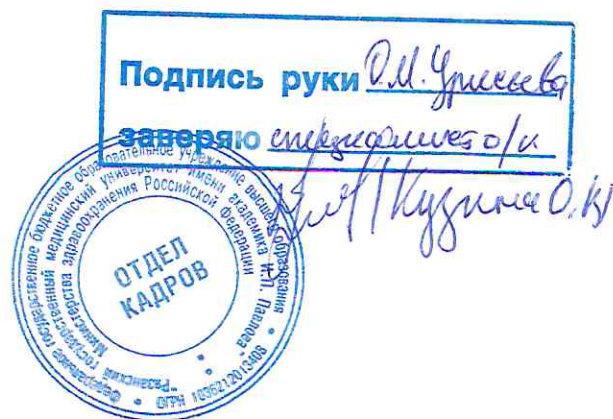 Подпись руки О.М. Урясьева
заверяю специалист о/к
Кузина О.И
Федеральное государственное бюджетное образовательное учреждение высшего образования
"Рязанский государственный медицинский университет имени академика И.П. Павлова"
Министерства здравоохранения Российской Федерации
ОТДЕЛ
КАДРОВ